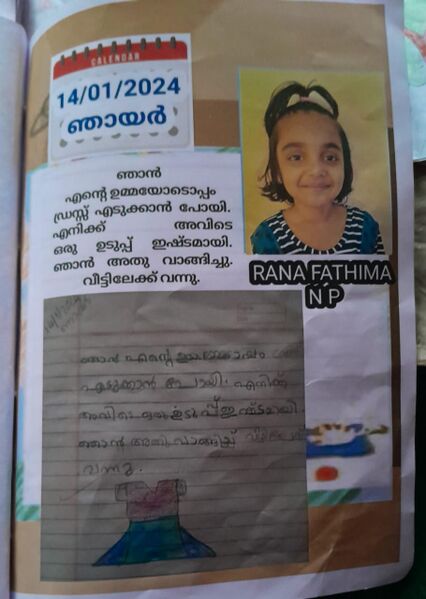 CALENDAR
14/01/2024
ഞായർ
ഞാൻ
എൻ്റെ ഉമ്മയോടൊപ്പം
ഡ്രസ്സ് എടുക്കാൻ പോയി.
എനിക്ക് അവിടെ
ഒരു ഉടുപ്പ് ഇഷ്ടമായി.
ഞാൻ അതു വാങ്ങിച്ചു.
വീട്ടിലേക്ക് വന്നു.
RANA FATHIMA
N P
ഞാൻ എൻ്റെ
എടുക്കാൻ പോയി. എനിക്ക്
അവിടെ ഒരു ഉടുപ്പ് ഇഷ്ടമായി.
ഞാൻ അതു വാങ്ങിച്ച്
വന്നു.